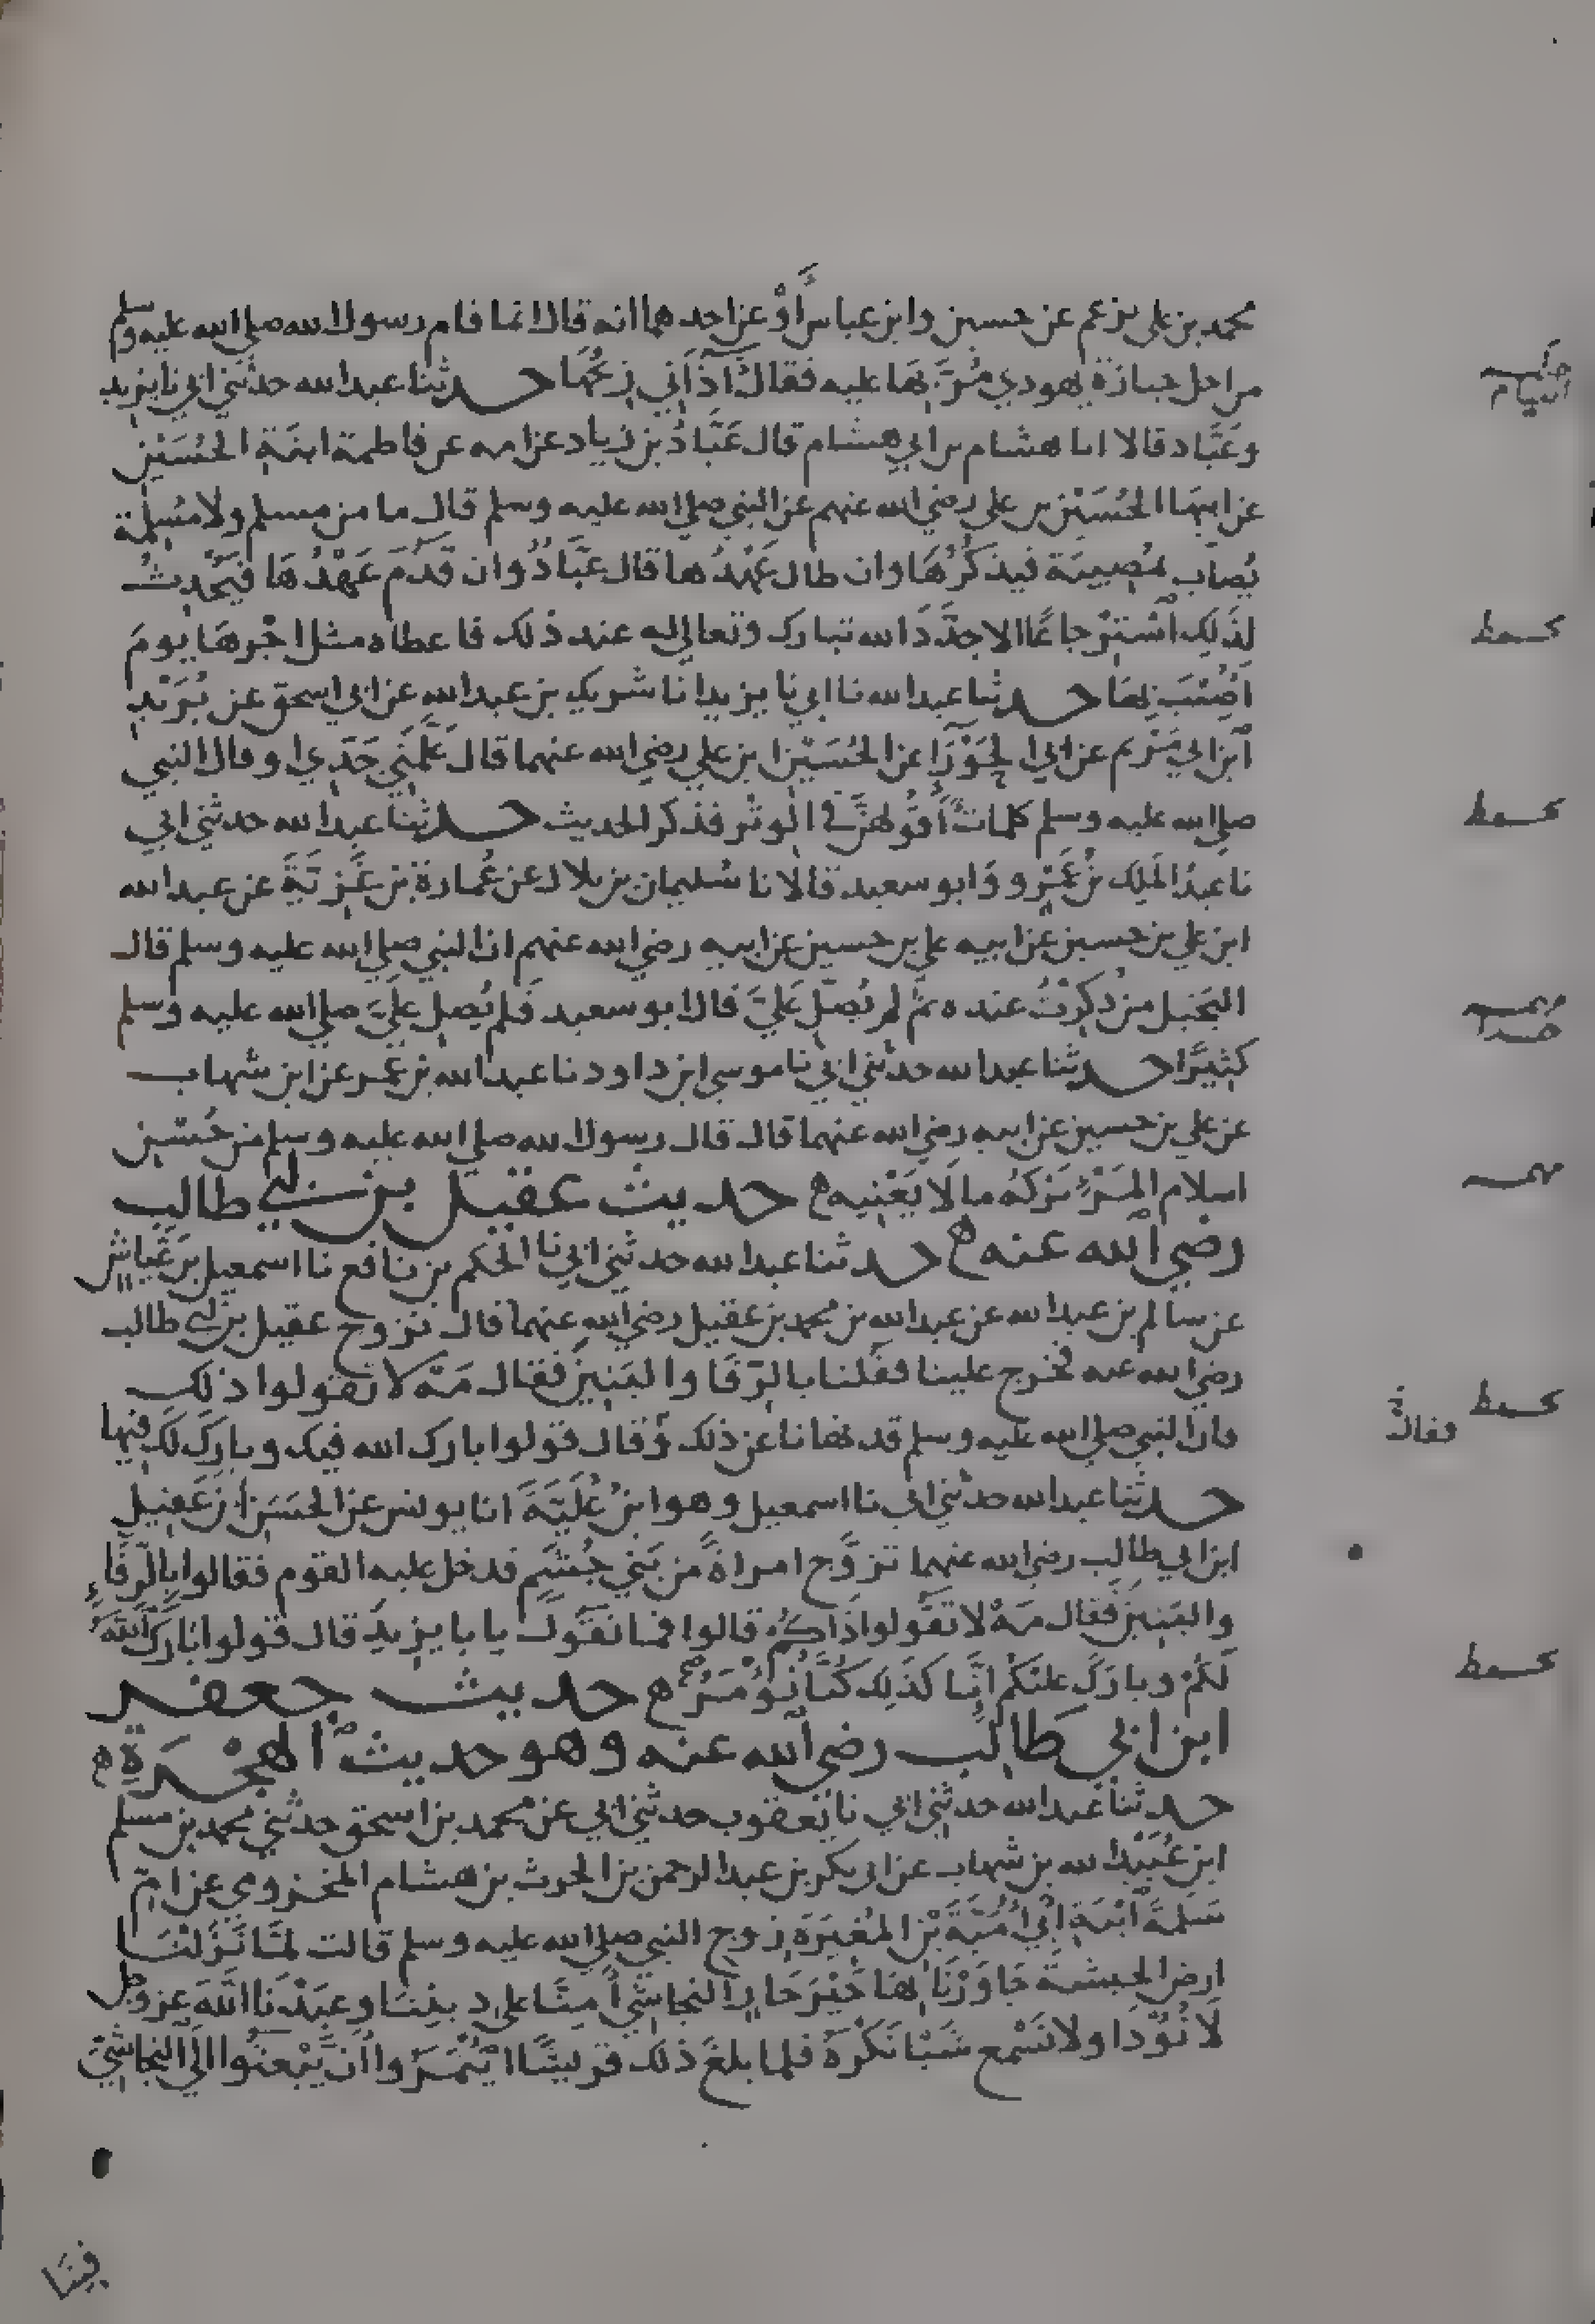 محمد بن علي يزعم عن حسين وابن عباس أو عن احدهما انه قال انما قام رسول الله صلى الله عليه وسلم
من اجل جنازة يهودي مُرَّ بها عليه فقال آذاني ريحها حدثنا عبد الله حدثني ابي نا يزيد
وعَبَّاد قالا انا هشام بن ابي هشام قال عَبَّادُ بن زياد عن امه عن فاطمة ابنة الحُسَيْن
عن ابيها الحُسَيْن بن علي رضي الله عنهم عن النبي صلى الله عليه وسلم قال ما من مسلم ولا مُسْلِمة
يُصاب بمُصِيبَة فيذكُرُهَا وان طال عَهْدُها قال عَبَّادُ وان قَدُمَ عَهْدُهَا فيُحْدِثُ
لذلِكَ اسْتِرْجاعًا الا جدَّدَ الله تبارك وتعالى له عند ذلك فاعطاه مثل اجْرِهَا يومَ
اُصِيْبَ بها حدثنا عبد الله نا ابي نا يزيد انا شريك بن عبد الله عن ابي اسحق عن بُرَيْدِ
ابن ابي مَرْيم عن ابي الحَوْرَا عن الحُسَيْن بن علي رضي الله عنهما قال عَلَّمَني جَدّي او قال النبي
صلى الله عليه وسلم كلماتٍ أقولهنَّ في الوتْر فذكر الحديث حدثنا عبد الله حدثني ابي
نا عبدُ الملِك بنُ عَمْرٍو وَابو سعيد قالا نا سُليمان بن بلال عن عُمارة بن غَزِيَّةَ عن عبد الله
ابن علي بن حسين عن ابيه علي بن حسين عن ابيه رضي الله عنهم ان النبي صلى الله عليه وسلم قال
البَخيل من ذُكِرْتُ عنده ثمّ لم يُصَلّ عَليَّ قال ابو سعيد فلم يُصل عليَّ صلى الله عليه وسلم
كثيرًا حدثنا عبد الله حدثني ابي نا موسى ابن داود نا عبد الله بن عمر عن ابن شهاب
عن علي بن حسين عن ابيه رضي الله عنهما قال قال رسول الله صلى الله عليه وسلم من حُسْن
اسلام المَرْءِ تركهُ ما لَا يَعْنِيه ه حديث عقيل بن ابي طالب
رضي الله عنه ه حدثنا عبد الله حدثني ابي نا الحكم بن نافع نا اسمعيل بن عَيَّاش
عن سالم بن عبد الله عن عبد الله بن محمد بن عقيل رضي الله عنهما قال تزوج عقيل بن ابي طالب
رضي الله عنه فخرج علينا فقلنا بالرِّفا والبَنين فقال مَهْ لا تقولوا ذلك
فان النبي صلى الله عليه وسلم قد نهانا عن ذلك وقال قولوا بارك الله فيك وبارك لك فيها
حدثنا عبد الله حدثني ابي نا اسمعيل وهو ابنُ عُلَيَّةَ انا يونس عن الحَسَن ان عَقِيل
ابن ابي طالب رضي الله عنهما تزوَّج امراةً من بَني جُشَمٍ فدخل عليه القوم فقالوا بالرِّفَاءِ
والبَنِين فقال مَهْ لا تقُولوا ذَاكُم قالوا فما نَقُولُ يا با يزيدَ قال قولوا بَارَكَ اللهُ
لَكُمْ وبارَكَ عليْكُمْ انَّا كَذلِك كُنَّا نُؤْمَرُ ه حديث جعفر
ابن ابي طالب رضي الله عنه وهو حديث الهِجْرَةِ ه
حدثنا عبد الله حدثني ابي نا يَعقوب حدثني ابي عن محمد بن اسحق حدثني محمد بن مسلم
ابن عُبَيْد الله بن شهاب عن ابي بكر بن عبد الرحمن بن الحرث بن هشام المخزومي عن امّ
سَلمةَ ابْنَةِ ابي اُمَيَّةَ بْن المُغِيرَةِ زوج النبي صلى الله عليه وسلم قالت لمَّا نَزَلْنَا
ارض الحبشةَ جَاوَرْنَا بها خَيْرَ جَارٍ النجاشيّ اَمِنَّا على دِينِنَا وعبَدْنَا اللهَ عز وجل
لَا نُؤْذَا ولا نَسْمع شَيْأ نَكْرَهُ فلما بلغ ذلك قريشًا ائتَمَرُوا أن يَّبْعَثُوا الي النجاشيّ
فقال
فِينَا